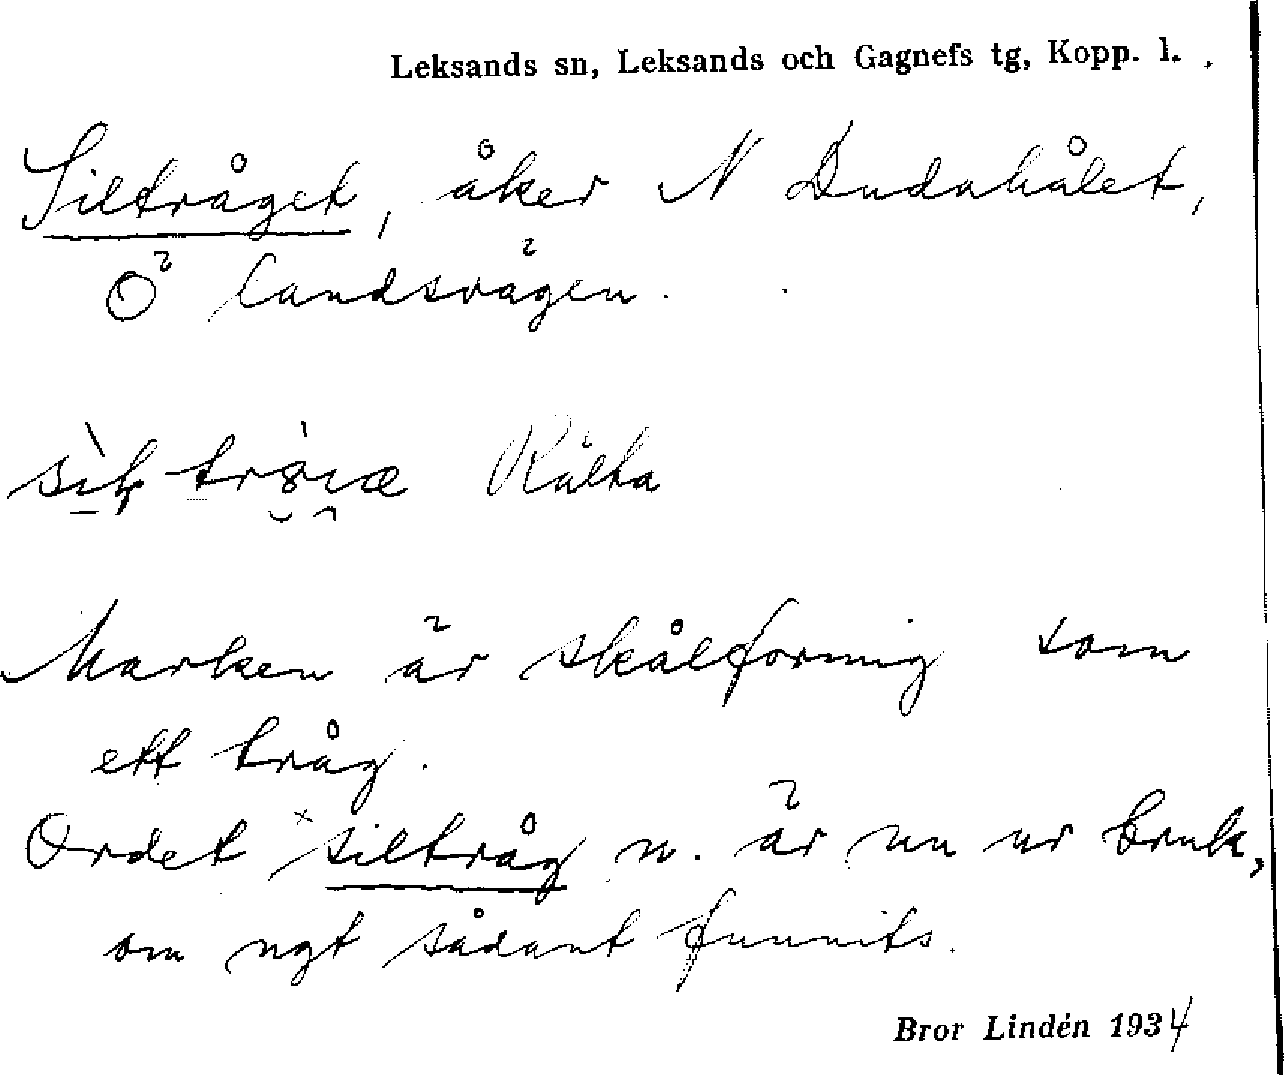 Leksands sn, Leksands och Gagnefs tg, Kopp. l.
Siltråget, åker N Dudahålet,
Ö landsvägen.
Rälta
Marken är skålformig som
ett tråg.
Ordet ×siltråg n. är nu ur bruk,
om ngt sådant funnits.
Bror Lindén 1934